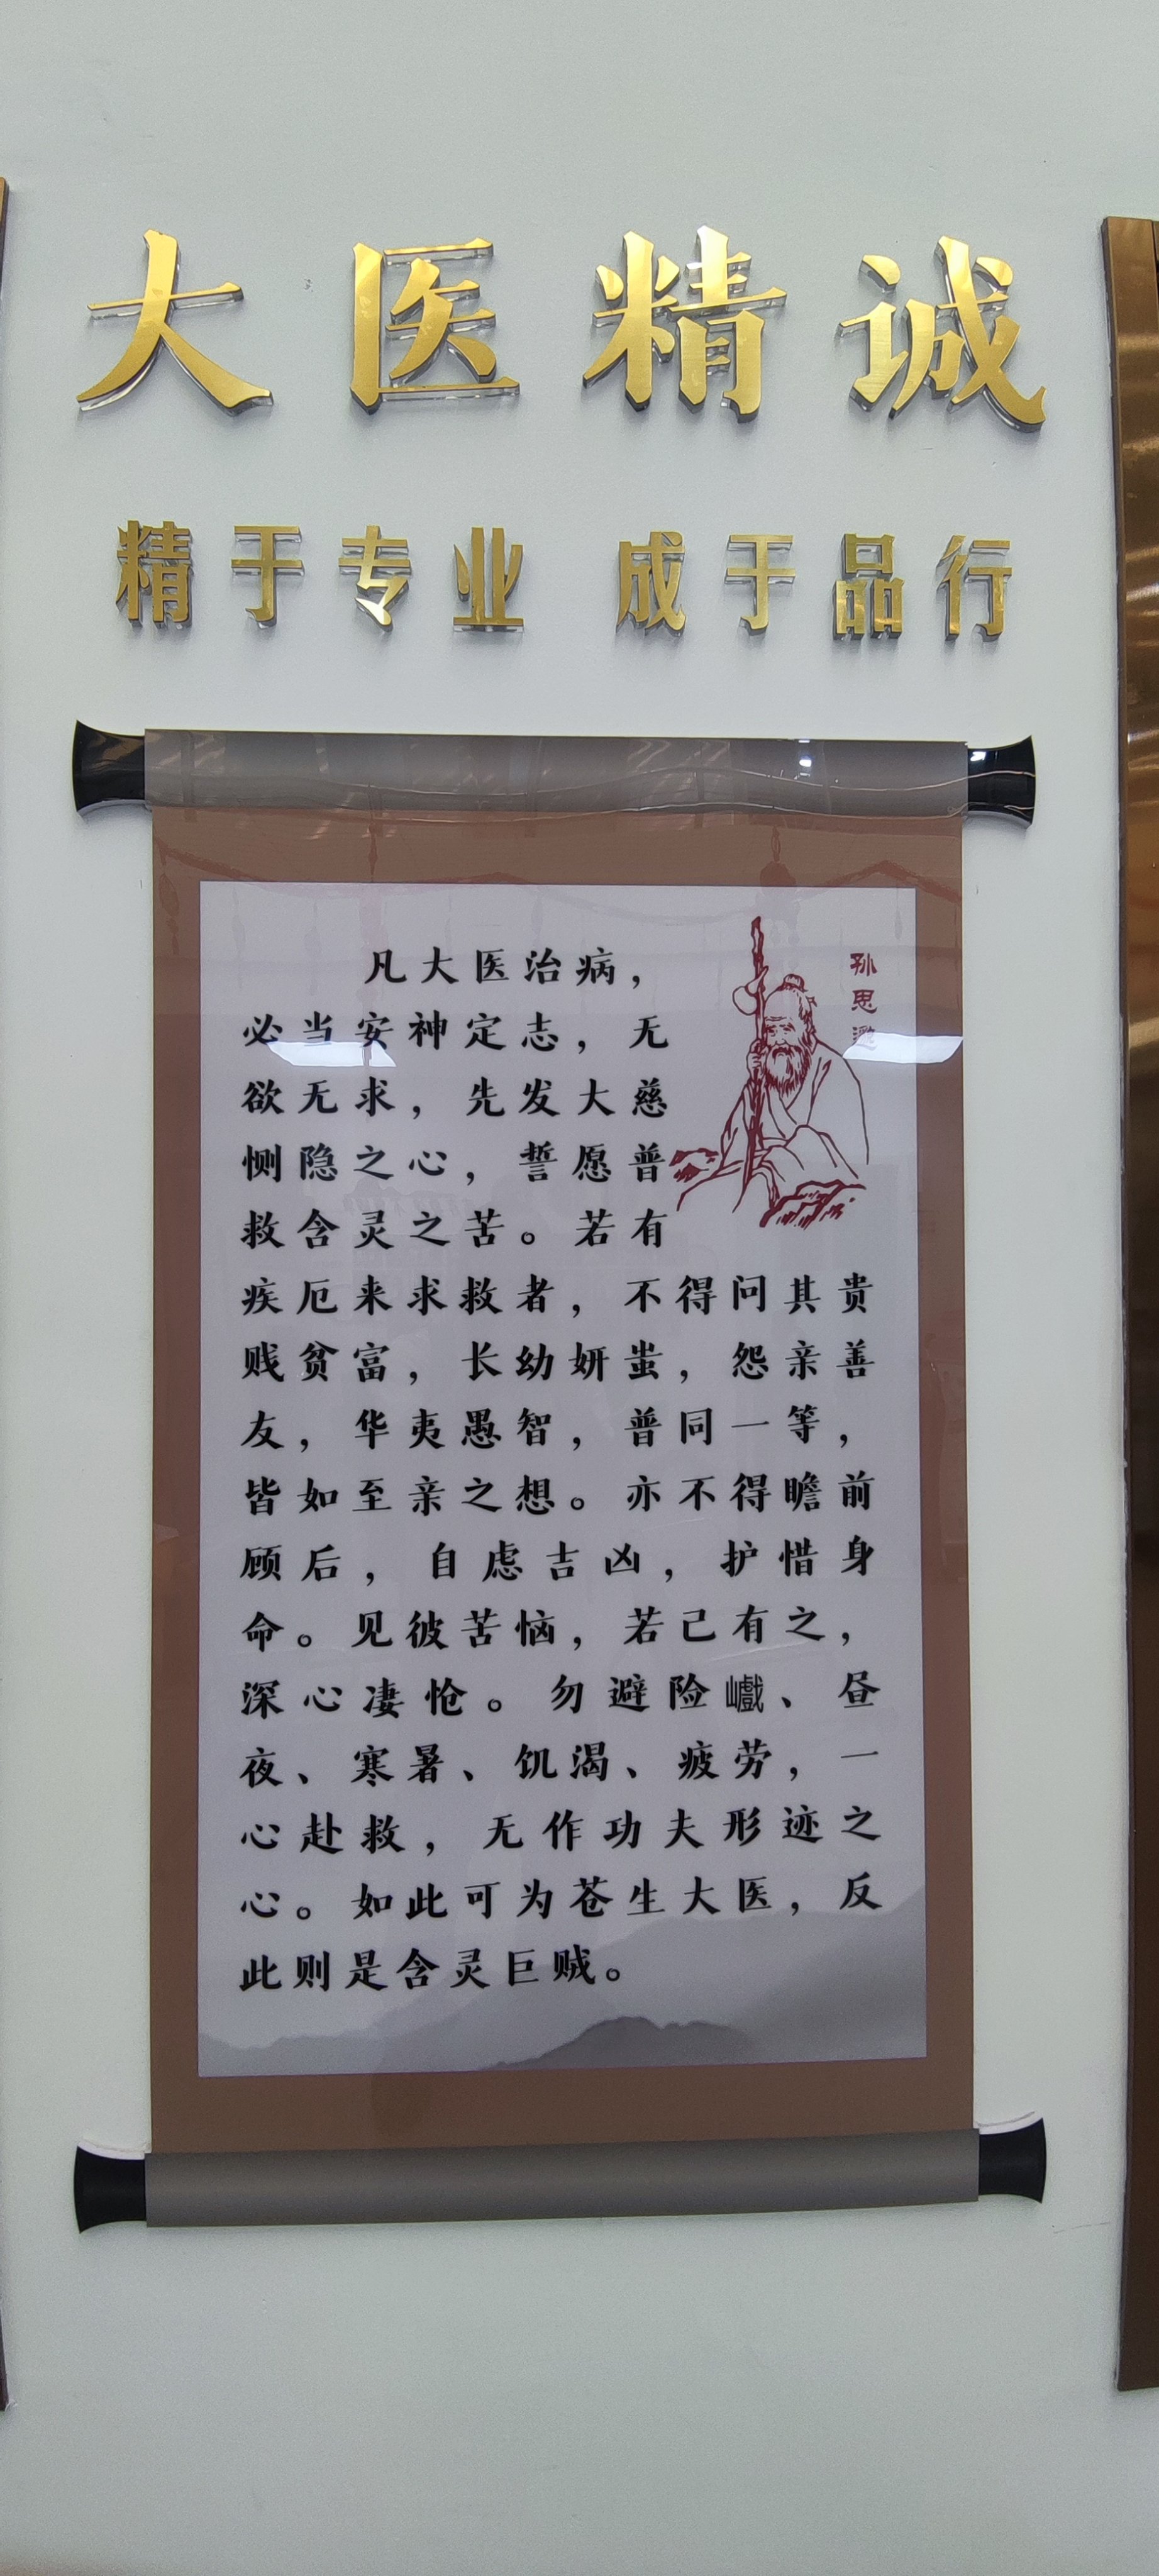 大医精诚
精于专业 成于品行
孙思邈
凡大医治病，
必当安神定志，无
欲无求，先发大慈
恻隐之心，誓愿普
救含灵之苦。若有
疾厄来求救者，不得问其贵
贱贫富，长幼妍蚩，怨亲善
友，华夷愚智，普同一等，
皆如至亲之想。亦不得瞻前
顾后，自虑吉凶，护惜身
命。见彼苦恼，若己有之，
深心凄怆。勿避险巇、昼
夜、寒暑、饥渴、疲劳，一
心赴救，无作功夫形迹之
心。如此可为苍生大医，反
此则是含灵巨贼。